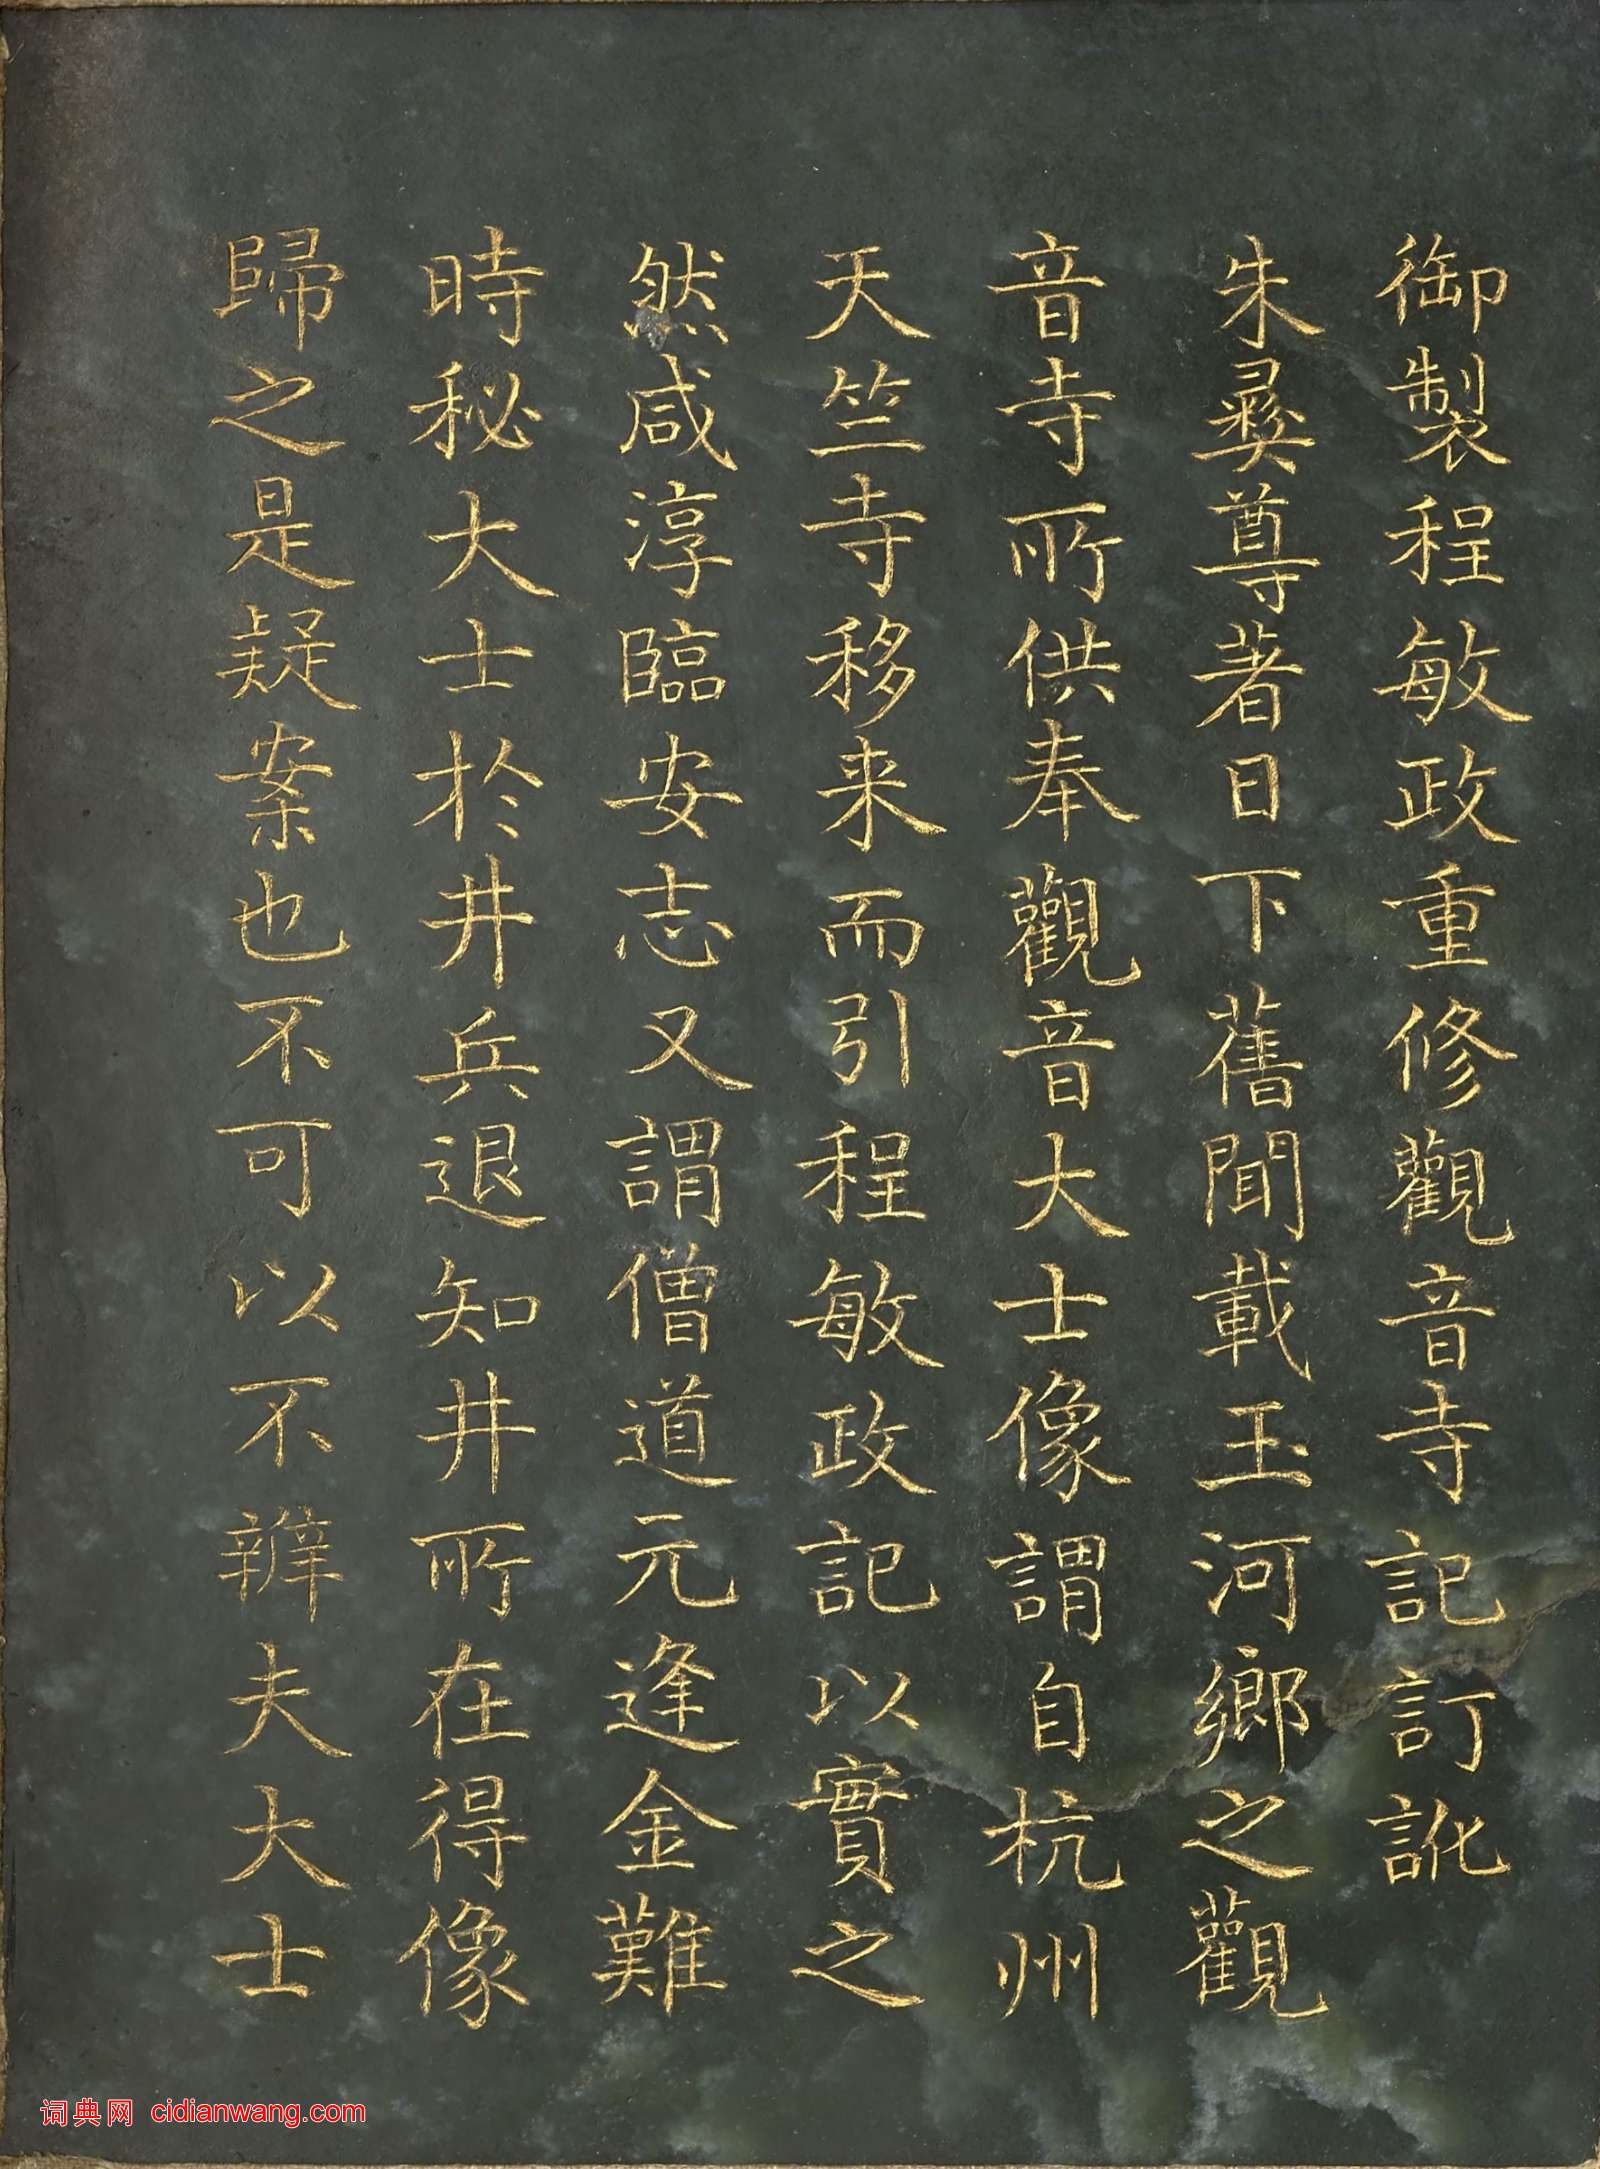 御製程敏政重修觀音寺記訂訛
朱彝尊著日下舊聞載玉河鄉之觀
音寺所供奉觀音大士像謂自杭州
天竺寺移来而引程敏政記以實之
然咸淳臨安志又謂僧道元逢金難
時秘大士於井兵退知井所在得像
歸之是疑案也不可以不辨夫大士
词典网 cidianwang.com